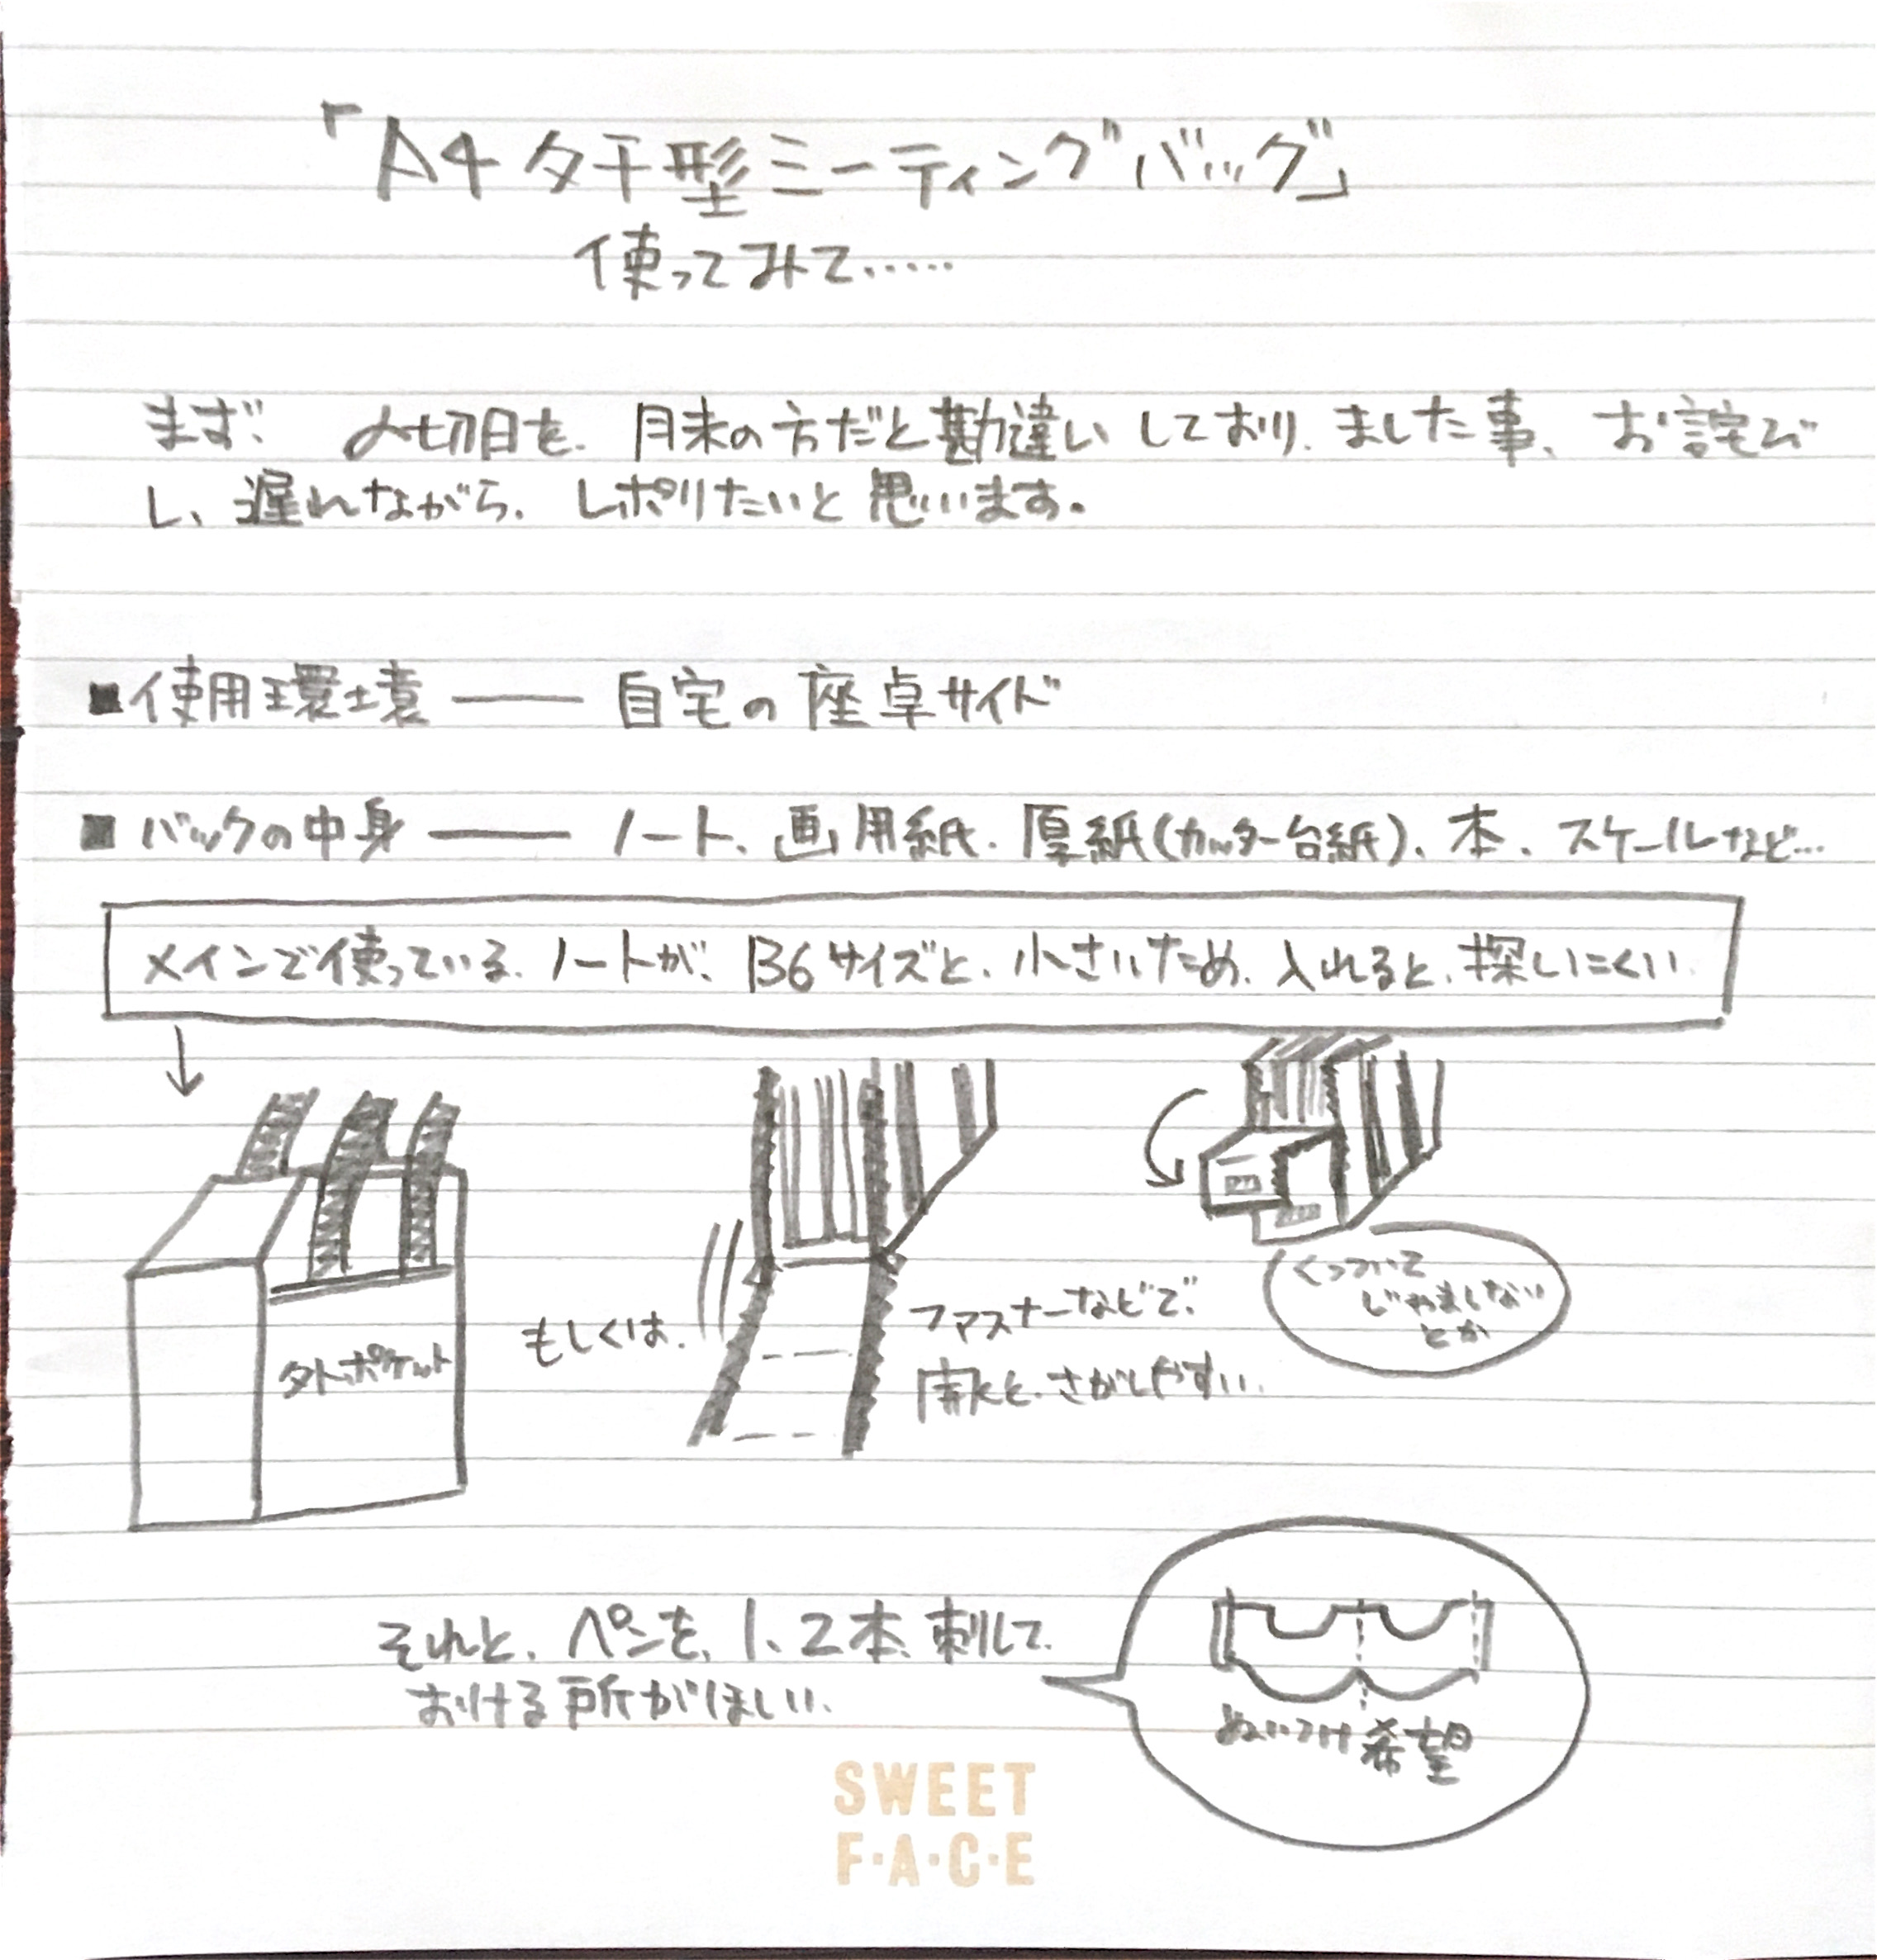 「A4タテ型ミーティングバッグ」
使ってみて……
まず、〆切日を、月末の方だと勘違いしており、ました事、お詫び
し、遅れながら、レポりたいと思います。
■使用環境 ―― 自宅の座卓サイド
■バックの中身 ―― ノート、画用紙、厚紙(カッター台紙)、本、スケールなど…
メインで使っている、ノートが、B6サイズと、小さいため、入れると、探しにくい
↓
外ポケット
もしくは、
ファスナーなどで、
開くと、さがしやすい、
くっついて
じゃましない
とか
それと、ペンを、1、2本、刺して、
おける所がほしい、
ぬいつけ希望
SWEET
F·A·C·E